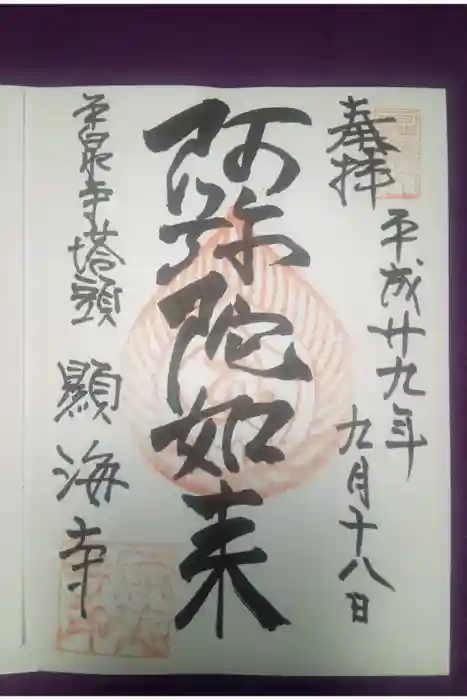 奉拝
平成廿九年
九月十八日
阿弥陀如来
平泉寺塔頭
顯海寺